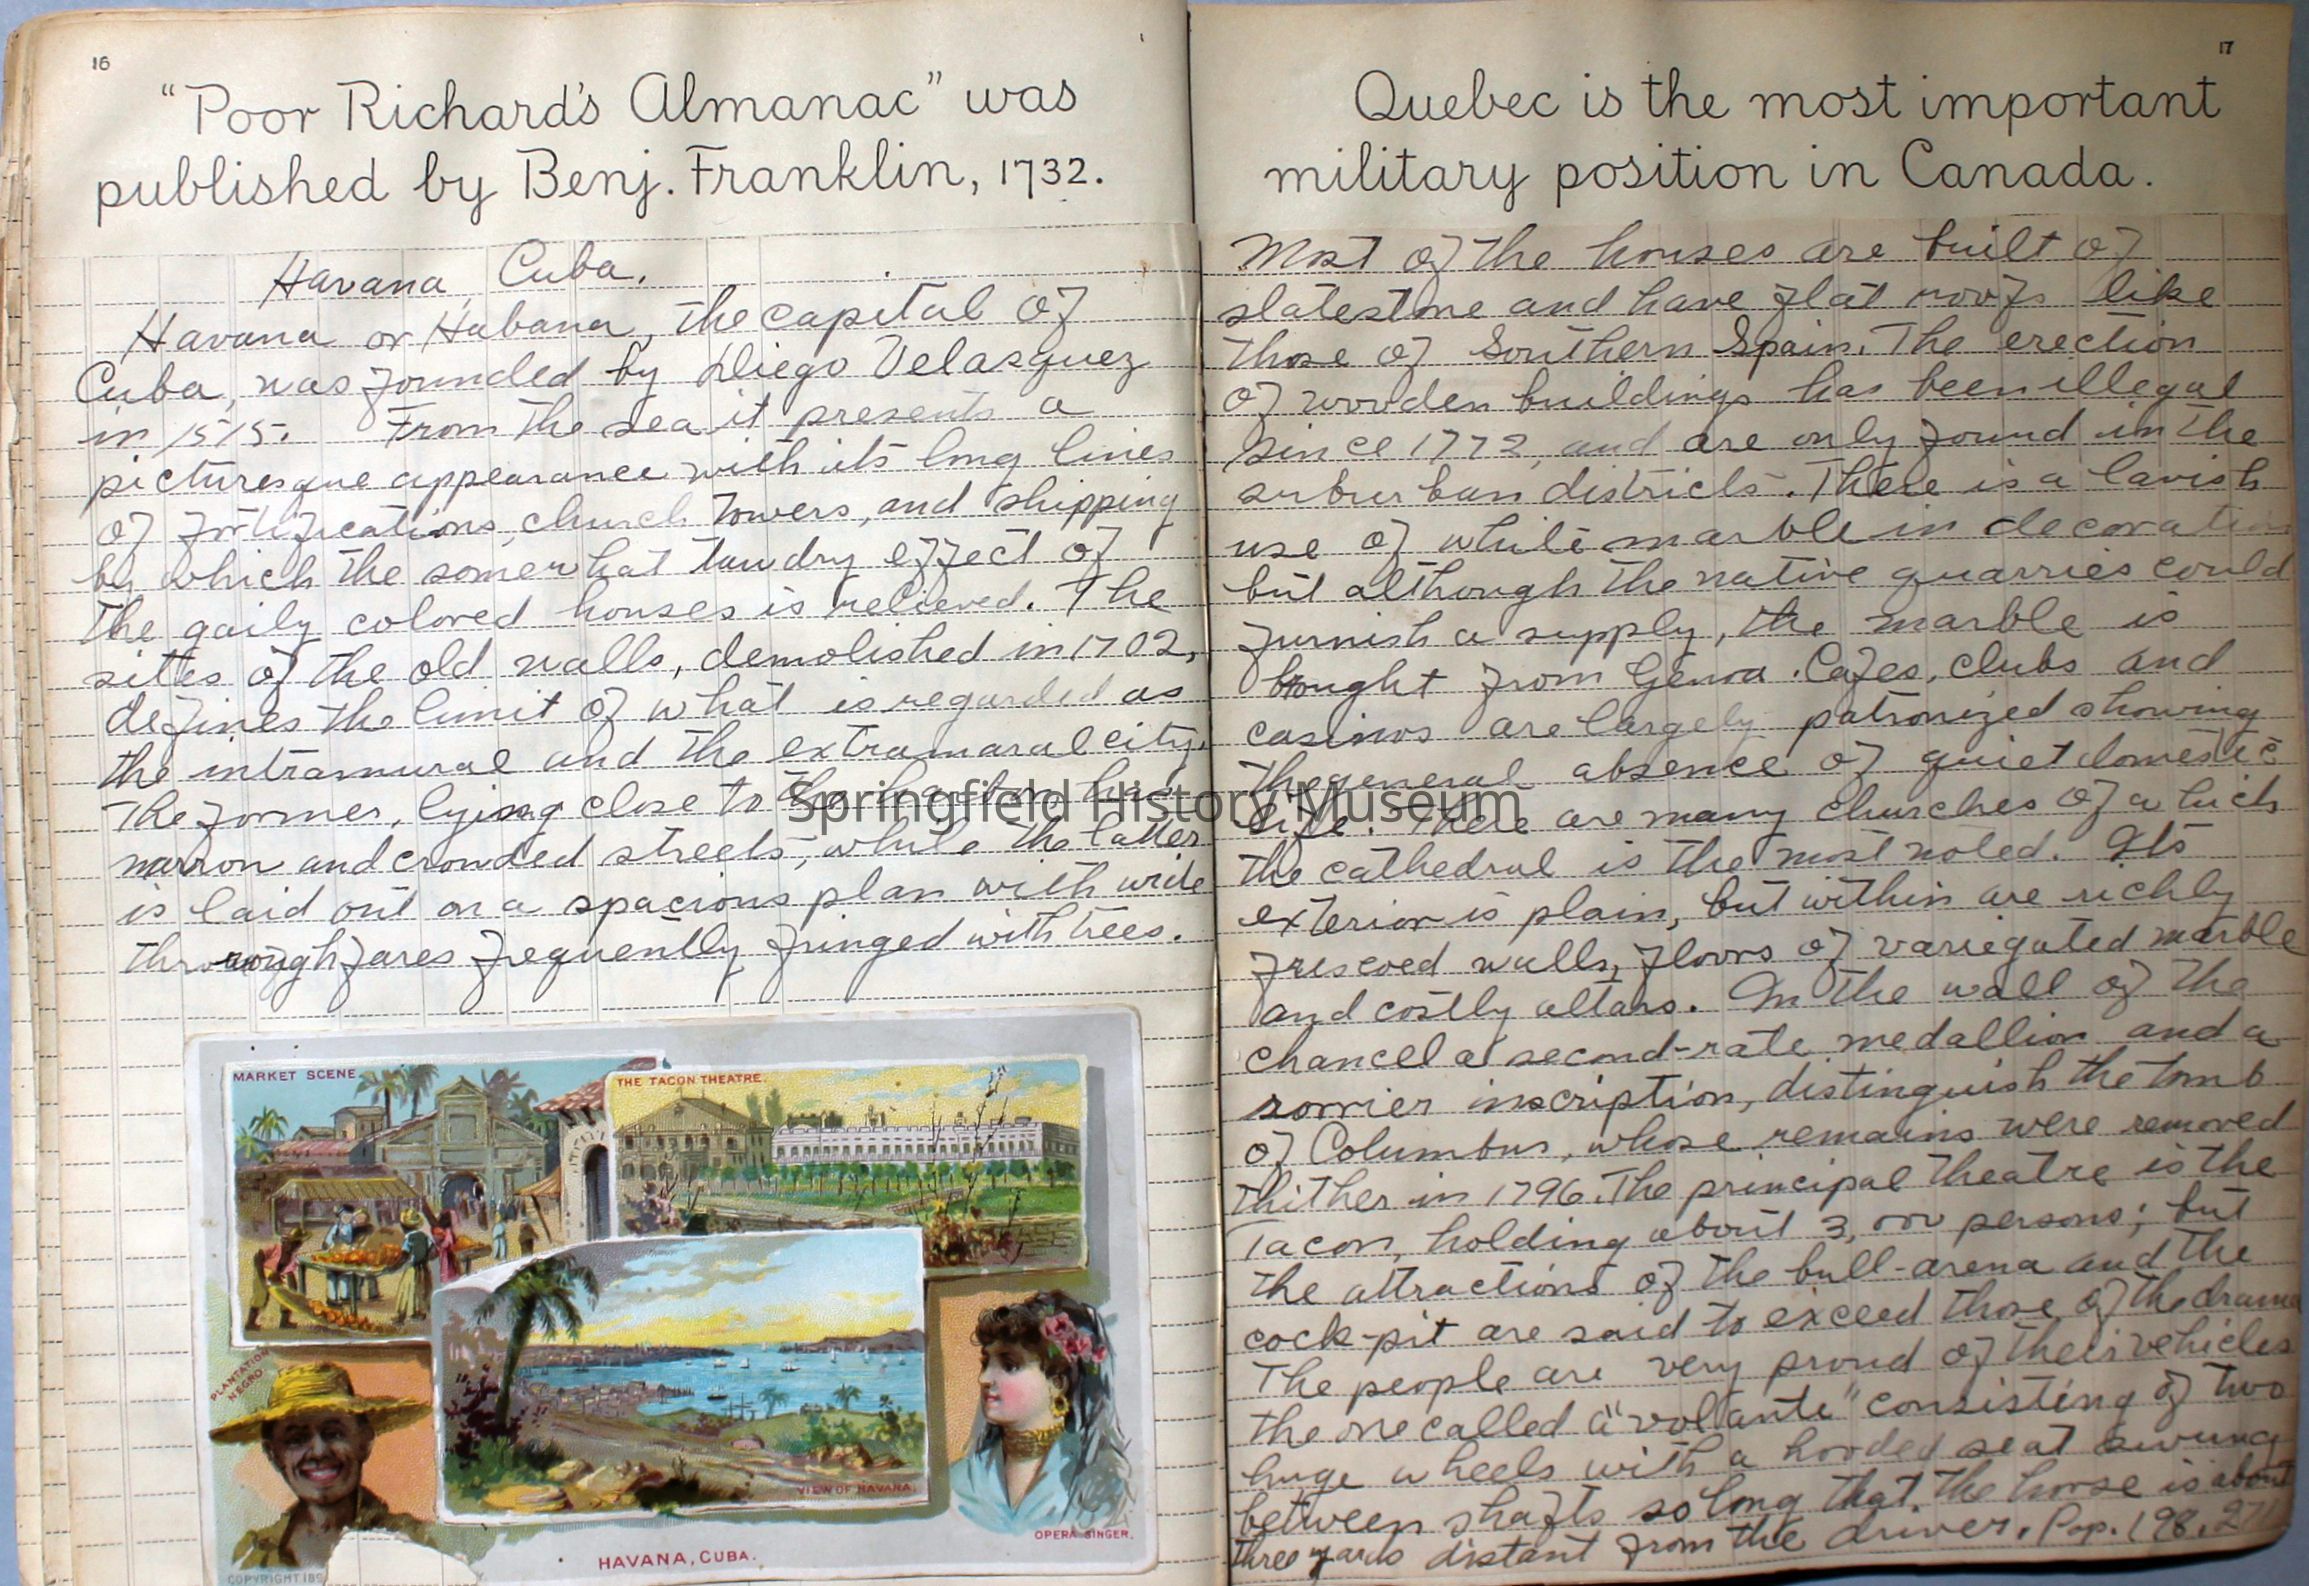 16
"Poor Richard's Almanac" was
published by Benj. Franklin, 1732.
Havana, Cuba.
Havana or Habana, the capital of
Cuba, was founded by Diego Velasquez
in 1515. From the sea it presents a
picturesque appearance with its long lines
of fortifications, church towers, and shipping
by which the somewhat tawdry effect of
the gaily colored houses is relieved. The
sites of the old walls, demolished in 1702,
defines the limit of what is regarded as
the intramural and the extramaral city.
The former, lying close to the harbor, has
narrow and crowded streets, while the latter
is laid out on a spacious plan with wide
thoroughfares frequently fringed with trees.
MARKET SCENE
THE TACON THEATRE.
PLANTATION
NEGRO.
VIEW OF HAVANA.
OPERA SINGER.
HAVANA, CUBA.
COPYRIGHT 189
17
Quebec is the most important
military position in Canada.
Most of the houses are built of
slatestone and have flat roofs like
those of Southern Spain. The erection
of wooden buildings has been illegal
since 1772, and are only found in the
suburban districts. There is a lavish
use of white marble in decoration
but although the native quarries could
furnish a supply, the marble is
brought from Genoa. Cafes, clubs and
casinos are largely patronized showing
the general absence of quiet domestic
life. There are many churches of which
the cathedral is the most noted. Its
exterior is plain, but within are richly
frescoed walls, floors of variegated marble
and costly altars. In the wall of the
chancel a second-rate medallion and a
sorrier inscription, distinguish the tomb
of Columbus, whose remains were removed
thither in 1796. The principal theatre is the
Tacon, holding about 3,000 persons; but
the attractions of the bull-arena and the
cock-pit are said to exceed those of the drama
The people are very proud of their vehicles
the one called a "volante" consisting of two
huge wheels with a hooded seat swung
between shafts so long that, the horse is about
three yards distant from the driver. Pop. 198,271
Springfield History Museum